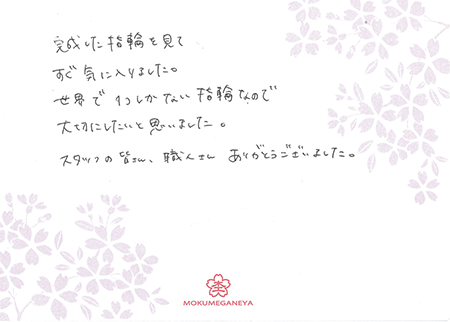 完成した指輪を見て
すぐ気に入りました。
世界で1つしかない指輪なので
大切にしたいと思いました。
スタッフの皆さん、職人さん ありがとうございました。
MOKUMEGANEYA